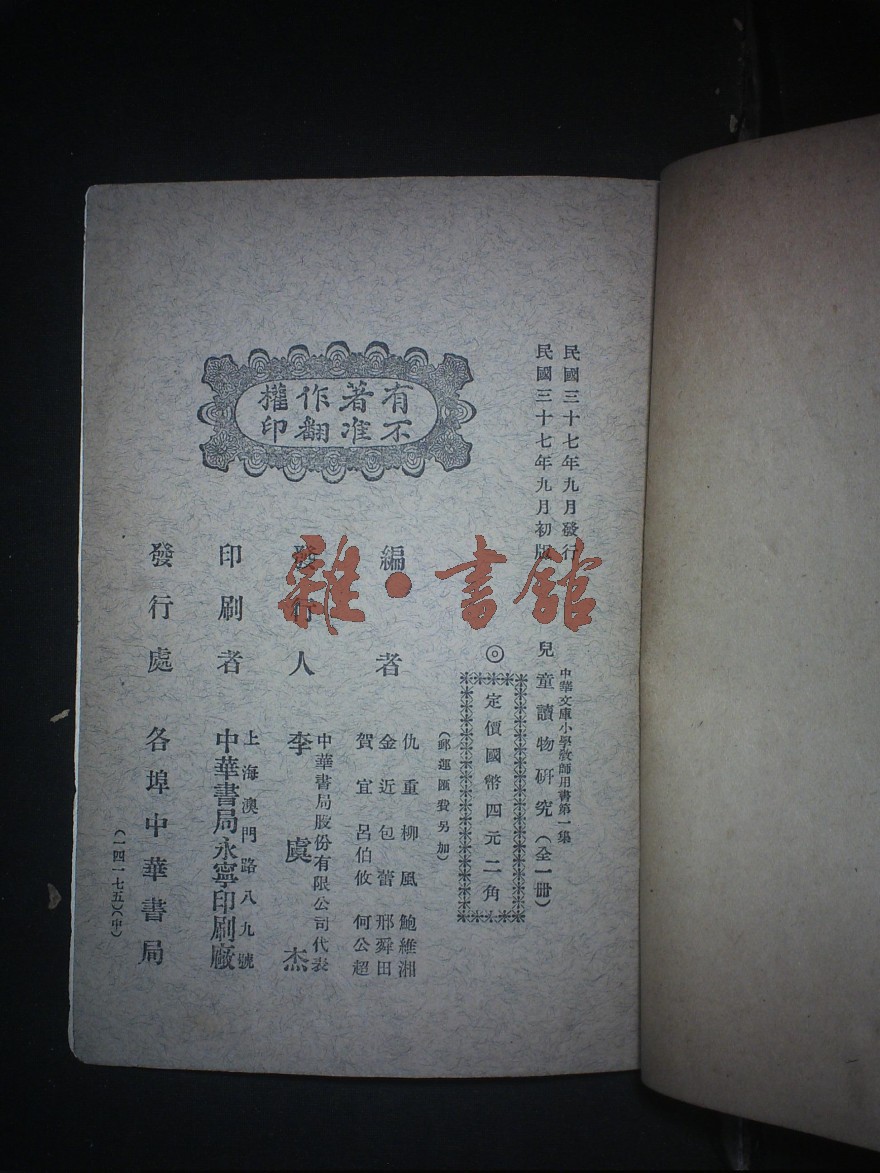 民國三十七年九月發行
民國三十七年九月初版
中華文庫小學教師用書第一集
兒童讀物研究（全一冊）
◎
定價國幣四元二角
（郵運匯費另加）
有著作權
不准翻印
編者
仇重 柳風 鮑維湘
金近 包蕾 邢舜田
賀宜 呂伯攸 何公超
發行人
中華書局股份有限公司代表
李虞杰
印刷者
上海澳門路八九號
中華書局永寧印刷廠
發行處
各埠中華書局
（一四一七五）（中）
雜·書館